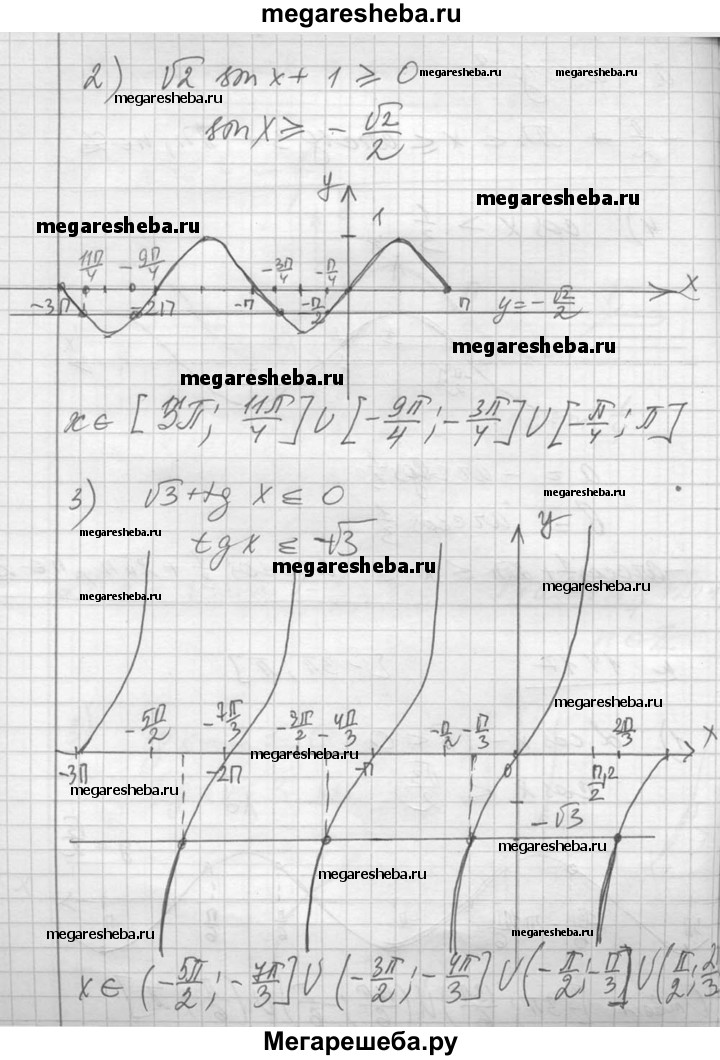 megaresheba.ru
2) √2 sin x + 1 ≥ 0 megaresheba.ru megaresheba.ru
megaresheba.ru
sin x ≥ - √2/2
y
megaresheba.ru
1
megaresheba.ru
11π/4 -9π/4 -3π/4 -π/4 x
-3π -2π -π -π/2 π y = -√2/2
megaresheba.ru
megaresheba.ru
x ∈ [3π; 11π/4] ∪ [-9π/4; -3π/4] ∪ [-π/4; π]
3) √3 + tg x ≤ 0
megaresheba.ru
y
megaresheba.ru
tg x ≤ -√3
megaresheba.ru
megaresheba.ru
megaresheba.ru
megaresheba.ru
-5π/2 -7π/3 -3π/2 -4π/3 -π/2 -π/3 2π/3 x
megaresheba.ru
-3π -2π -π 0 π/2
megaresheba.ru
-√3
megaresheba.ru
megaresheba.ru
megaresheba.ru
megaresheba.ru
x ∈ (-5π/2; -7π/3] ∪ (-3π/2; -4π/3] ∪ (-π/2; -π/3] ∪ (π/2; 2/3
Мегарешеба.ру